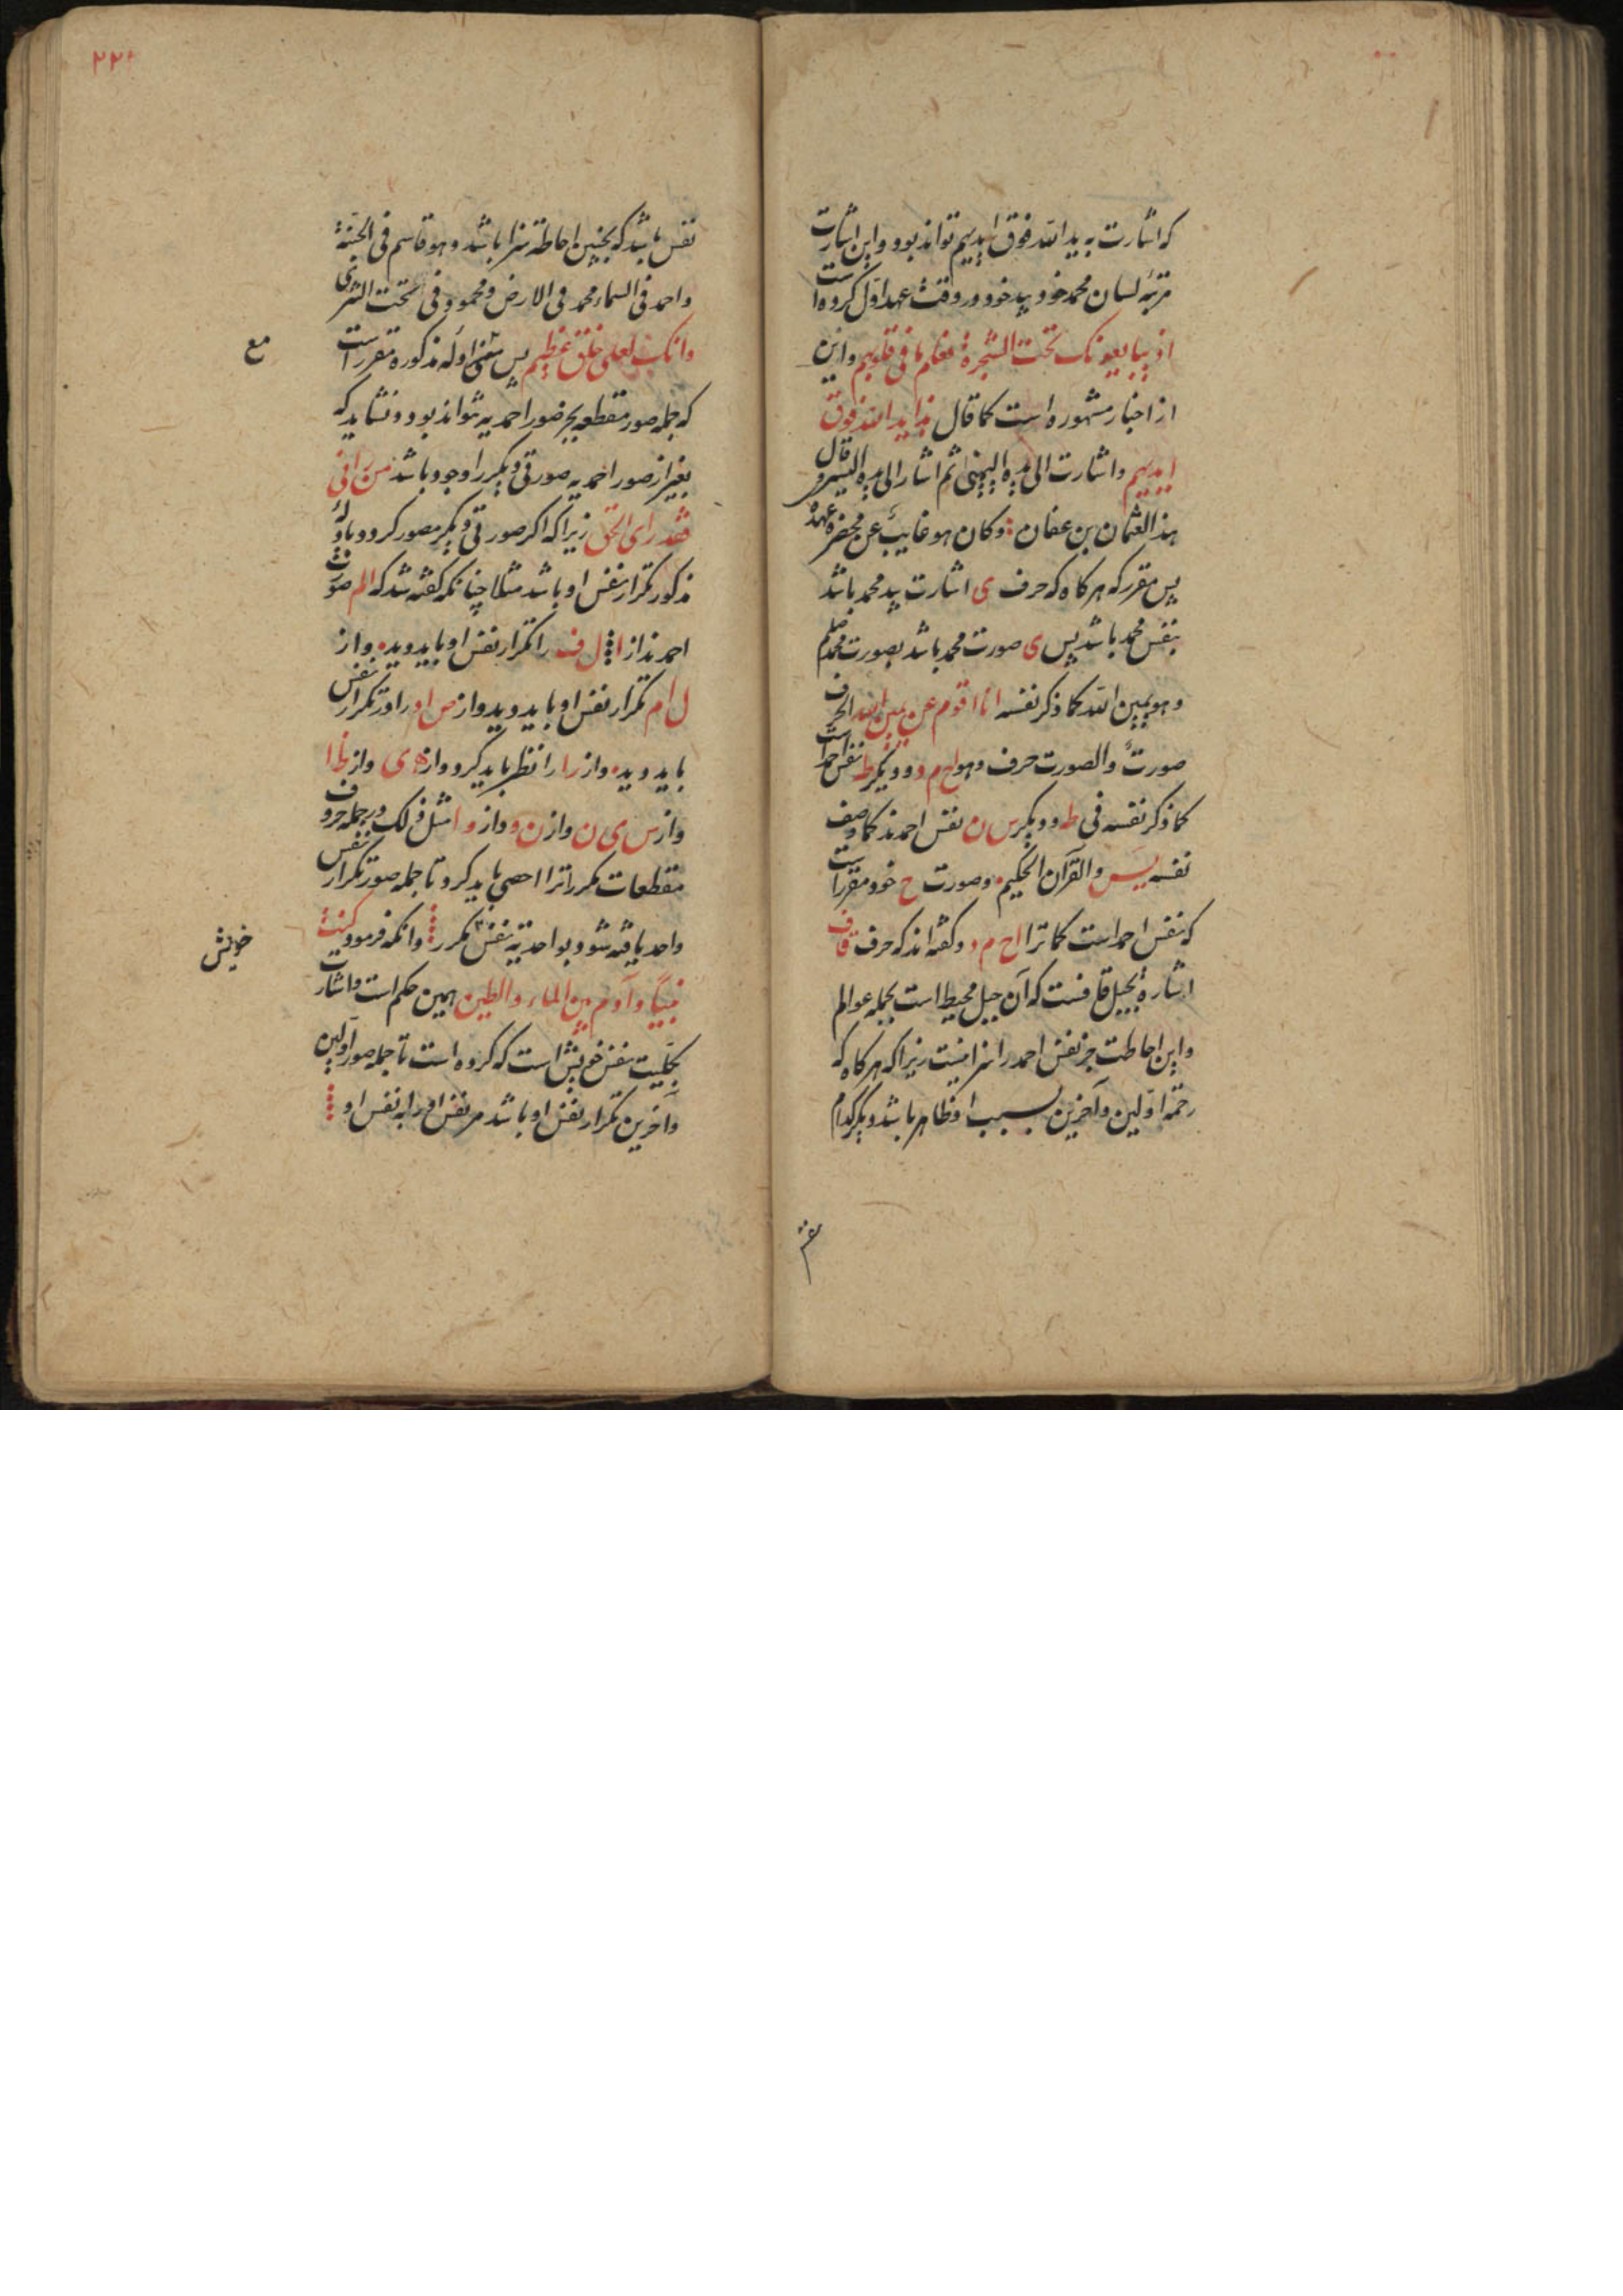 که اشارت به ید الله فوق ایدیهم تواند بود و این اشارت
مرتبه لسان محمد خود بید خود در وقت عهد اول کرده است
اذ یبایعونک تحت الشجرة فعلم ما فی قلوبهم و این
از اخبار مشهوره است کما قال هذا ید الله فوق
ایدیهم و اشارت الی یده الیمنی ثم اشار الی یده الیسری و قال
هذا لعثمان بن عفان و کان هو غایب عن محضره عهد
پس مقرر که هر کاه که حرف ی اشارت بید محمد باشد
بنفس محمد باشد پس ی صورت محمد باشد بصورت محمد صلعم
و هو یمین الله کما ذکر نفسه انا اقوم عن یمین الله الحرف
صورت و الصورت حرف و هو ا ح م د و دیکر ط نفس احمد است
کما ذکر نفسه فی طه و دیکر س ن نفس احمدند کما وصف
نفسه یس والقرآن الحکیم و صورت ح خود مقرر است
که نفس احمد است کما تری ا ح م د و کفته اند که حرف قاف
اشاره بجبل قافست که آن جبل محیط است بجمله عوالم
و این احاطت جز نفس احمد را سزا نیست زیرا که هر کاه که
رحمة اولین و آخرین بسبب او ظاهر باشد دیکر کدام
نفس
٢٢٠
نفس باشد که بچنین احاطة سزا باشد و هو قاسم فی الجنة
و احمد فی السماء محمد فی الارض و محمود فی تحت الثری
وانک لعلی خلق عظیم پس مع ادله مذکوره مقرر است
مع
که جمله صور مقطعه بجز صور احمدیه نتواند بود و نشاید که
بغیر از صور احمدیه صورتی دیکر را وجود باشد من رانی
فقد رای الحق زیرا که اکر صورتی دیکر مصور کردد بادله
مذکور تکرار نفس او باشد مثلا چنانکه کفته شد که الم صورت
احمدند از ا ل ف را تکرار نفس او باید دید و از
ل ا م تکرار نفس او باید دید و از ص ا د را در تکرار نفس
باید دید و از را را نظر باید کرد و از ه ی و از ط ا
و از س ی ن و از ن و از و ا مثل ذلک در جمله حروف
مقطعات مکرراترا احصی باید کرد تا جمله صور تکرار نفس
واحد یافته شود بواحدیة نفس مکرر و آنکه فرمود کنت
نبیا و آدم بین الماء والطین همین حکم است و اشارت
بکلیت نفس خویش است که کرده است تا جمله صور اولین
خویش
و آخرین تکرار نفس او باشد مر نفس او را به نفس او